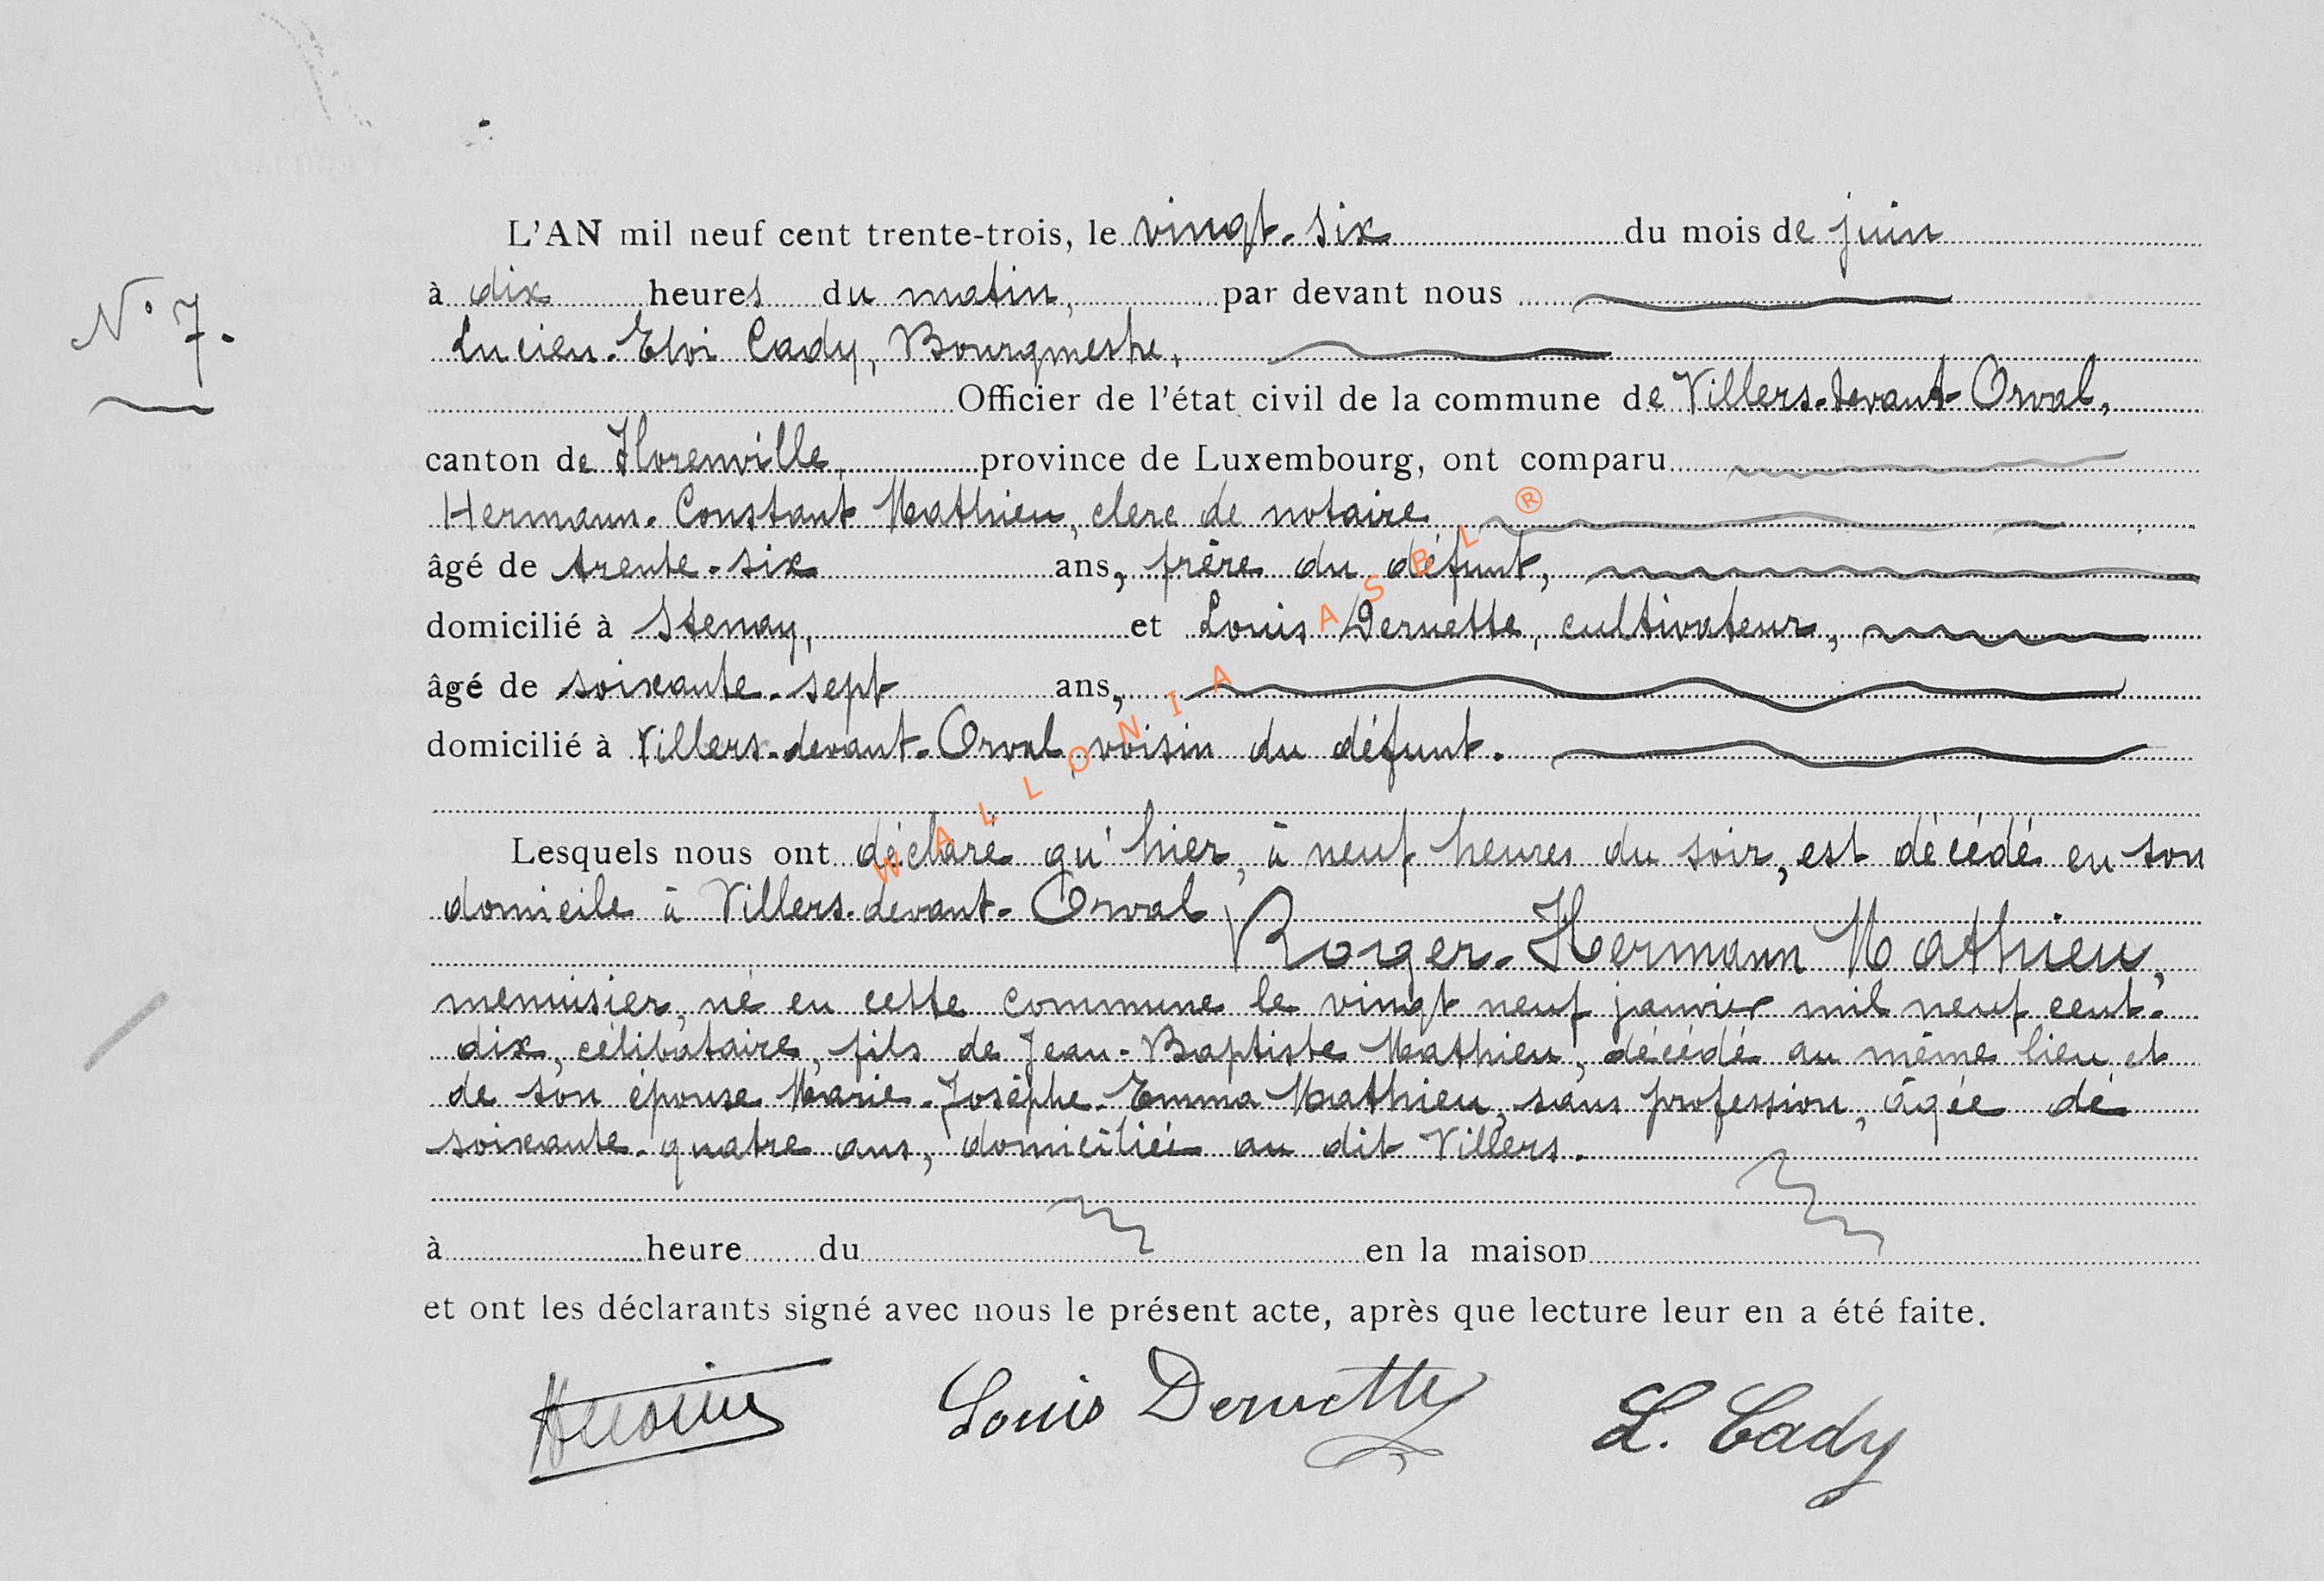 L'AN mil neuf cent trente-trois, le vingt-six du mois de juin
N° 7.
à dix heures du matin, par devant nous
Lucien-Eloi Cady, Bourgmestre,
Officier de l'état civil de la commune de Villers-devant-Orval,
canton de Florenville, province de Luxembourg, ont comparu
Hermann-Constant Mathieu, clerc de notaire
âgé de trente-six ans, frère du défunt,
domicilié à Stenay, et Louis Dernette, cultivateur,
âgé de soixante-sept ans,
domicilié à Villers-devant-Orval, voisin du défunt.
Lesquels nous ont déclaré qu'hier, à neuf heures du soir, est décédé en son
domicile à Villers-devant-Orval
Roger-Hermann Mathieu,
menuisier, né en cette commune le vingt neuf janvier mil neuf cent-
dix, célibataire, fils de Jean-Baptiste Mathieu, décédé au même lieu et
de son épouse Marie-Josèphe-Emma Mathieu, sans profession, âgée de
soixante-quatre ans, domiciliée au dit Villers.
à heure du en la maison
et ont les déclarants signé avec nous le présent acte, après que lecture leur en a été faite.
Louis Dernette L. Cady
WALLONIA ASBL ®